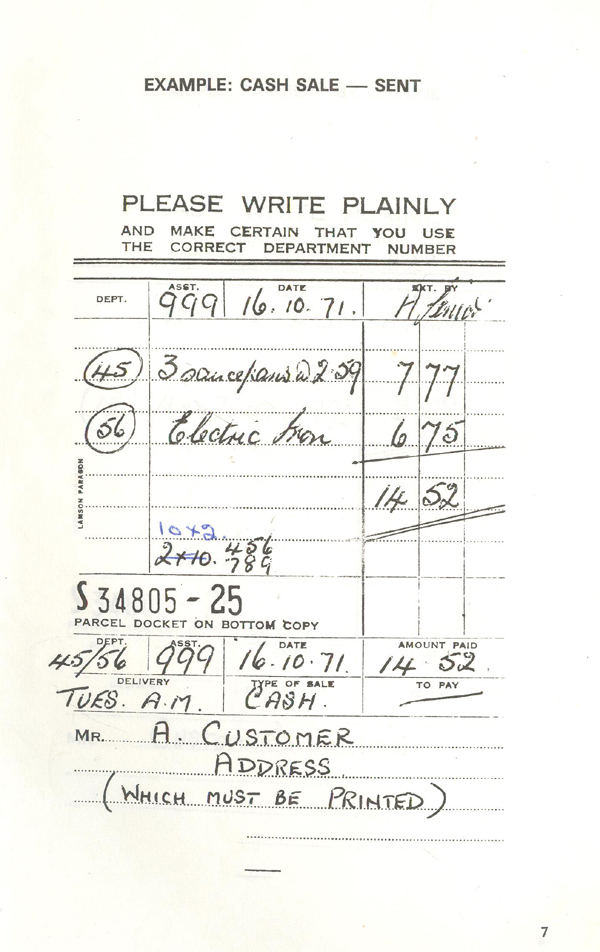 EXAMPLE: CASH SALE — SENT
PLEASE WRITE PLAINLY
AND MAKE CERTAIN THAT YOU USE
THE CORRECT DEPARTMENT NUMBER
DEPT. ASST. 999 DATE 16.10.71. EXT. BY
45 3 saucepans @ 2.59 7 77
56 Electric Iron 6 75
14 52
LAMSON PARAGON
10 x 2
2 x 10. 456
789
S 34805 - 25
PARCEL DOCKET ON BOTTOM COPY
DEPT. ASST. DATE AMOUNT PAID
45/56 999 16.10.71. 14 52.
DELIVERY TYPE OF SALE TO PAY
TUES. A.M. CASH. —
MR. A. CUSTOMER
ADDRESS
(WHICH MUST BE PRINTED)
7